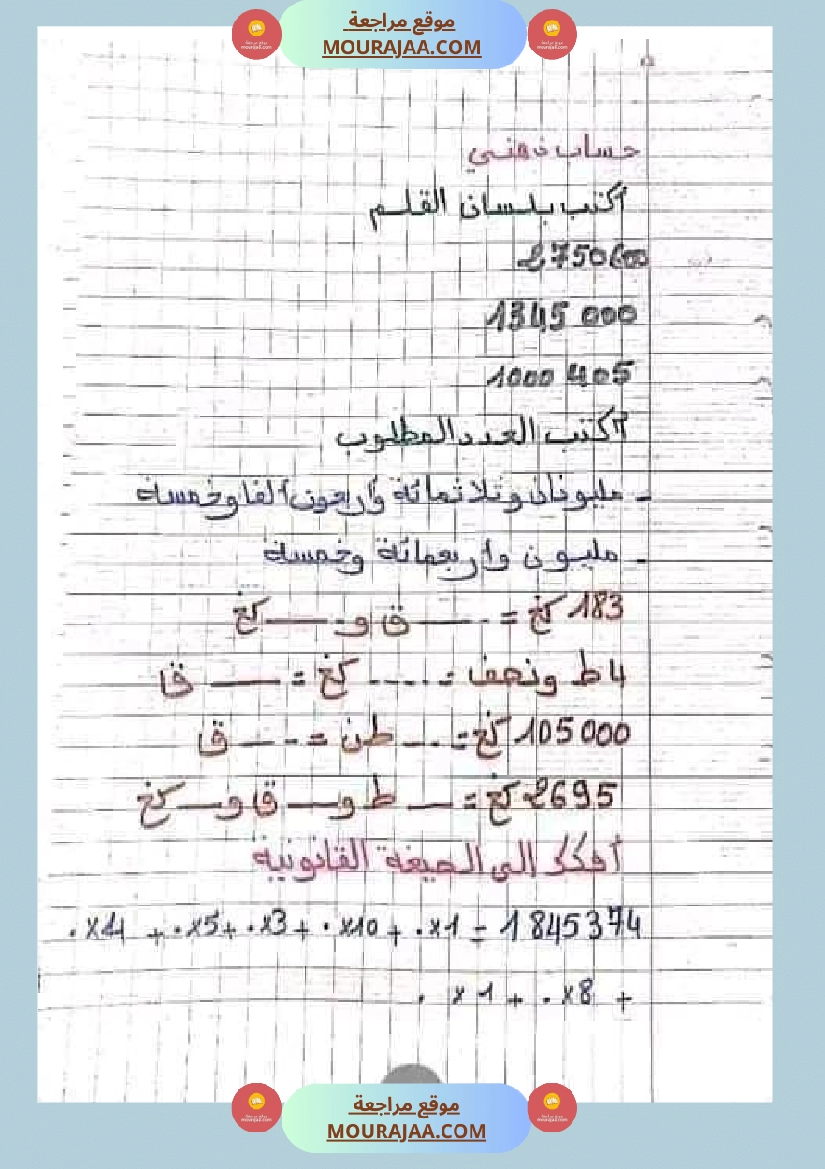 موقع مراجعة
MOURAJAA.COM
حساب ذهني
أكتب بلسان القلم
2750600
1345 000
1000 405
أكتب العدد المطلوب
- مليونان وثلاثمائة وأربعون ألفا وخمسة
- مليون وأربعمائة وخمسة
183 كغ = ---- ق و ---- كغ
4 ط ونصف = ---- كغ = ---- ق
105 000 كغ = --- طن = --- ق
2695 كغ = --- ط و --- ق و --- كغ
أفكك إلى الصيغة القانونية
.x14 + .x5 + .x3 + .x10 + .x1 = 1845374
. x1 + .x8 +
موقع مراجعة
MOURAJAA.COM